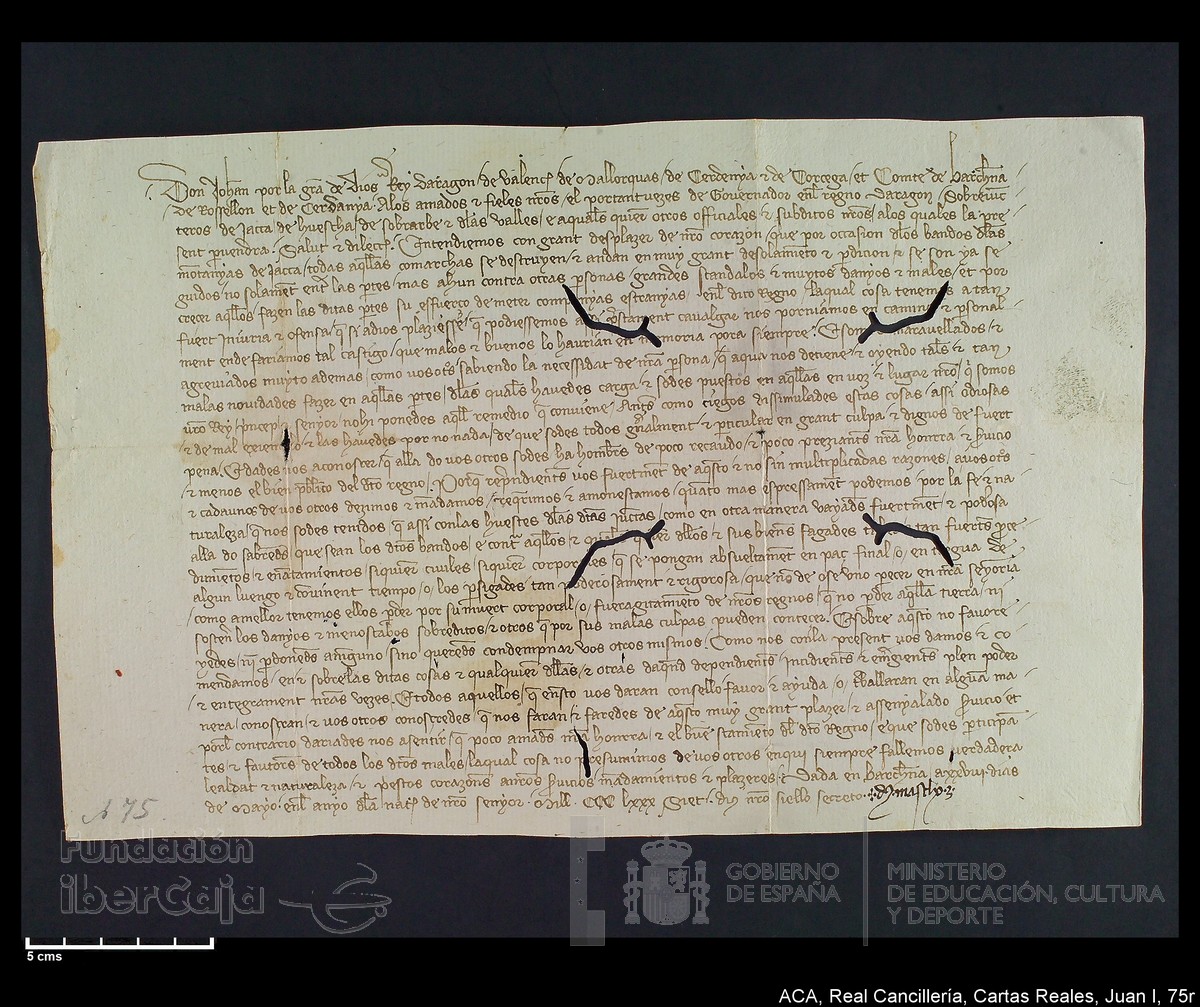 Don Johan por la gra de Dios Rey Daragon / de Valencia de Mallorquas / de Cerdenya & de Corcega / et Comte de Barchna
de Rossellon et de Cerdanya. Alos amados & fieles nros / el portantvezes de Governador enl regno Daragon / Sobrevnc
teros de Jacca / de huescha / de sobrarbe & dlas valles / e aquals quier otros officiales & subditos nros / alos quales la pre
sent pvendra. Salut & dilecc. Entendiemos con grant desplazer de nro corazon / que por occasion dlos bandos dlas
montanyas de Jacca / todas aqllas comarchas se destruyen / & andan en muy grant desolamiento & pdicion / & se son ya se
guidos no solament entrl las ptes / mas ahun contra otras psonas / grandes scandalos & muytos danyos & males / et por
crecer aqllos fazen las ditas ptes su esfuerço de meter companyas estranyas / enl dito Regno / laqual cosa tenemos a tan
fuert iniuria & ofensa / q si adios plaziesse / q podiessemos prestament cavalgar nos porniamos en camino / & psonal
ment ende fariamos tal castigo / que malos & buenos lo haurian en memoria pora siempre. E somos maravellados / &
agreuiados muyto ademas / como vosotros sabiendo la necessidat de nra psona / q aqua nos detiene / & oyendo tales & tan
malas novidades fazer en aqllas ptes / dlas quals havedes carga / & sodes puestos en aqllas en voz & lugar nro / q somos
vro Rey / princep & senyor / nohi ponedes aqll remedio q conviene / Antes como ciegos dissimulades estas cosas / assi odiosas
& de mal exemplo / & las havedes por no nada / de que sodes todos gnalment & pticular en grant culpa / & dignos de fuert
pena. E dades nos aconoscer / q alla do vos otros sodes ha hombres de poco recaudo / & poco preziants nra honrra / & svicio
& menos el bien publico del dto regno. Porq reprndients vos fuertment de aqsto & no sin multiplicadas razones / avosotrs
& cadauno de vos otros dezimos & mandamos / reqrimos & amonestamos / quanto mas espressament podemos / por la fe & na
turaleza / q nos sodes tenidos q assi conlas huestes dlas dtas juntas / como en otra manera vayades fuertment & podosa
alla do sabredes que sean los dtos bandos / e contra aqllos & qualquier dllos / & sus bienes fagades tan fuertes pce
dimientos & enantamientos siquier civiles siquier corporales q se pongan absueltament en paç final / o / en tregua de
algun luengo & convinent tiempo / o / los psigades tan poderosament & rigorosa / que no de ose uno pecer en nra senyoria
como amellor tenemos ellos pder por su muert corporal / o / fueragitamiento de nros regnos / q no pder aqlla tierra / ni
sosten los danyos & menoscabos sobreditos / & otros q por sus malas culpas pueden contecer. E sobre aqsto no favore
yedes / ni pdonedes aninguno / sino queredes condempnar vos otros mismos. Como nos conla present vos damos / & co
mendamos / en & sobre las ditas cosas & qualquier dllas / & otras daqnd dependients / incidients & emgients plen poder
& entegrament nras vezes. E todos aquellos / q en esto vos daran consello favor & ayuda / o / treballaran en alguna ma
nera / conosceran / & vos otros conoscredes q nos faran / & faredes de aqsto muy grant plazer / & assenyalado svicio et
porl contrario dariades nos asentir / q poco amades nra honrra / & el buen stamiento dl dto Regno / e que sodes pticipa
tes & fautores de todos los dtos males / laqual cosa no presumimos de vos otros enqui siempre fallemos verdadera
lealdat & naturaleza / & prestos corazons anros svicios mandamientos & plazeres. Dada en Barchna a xxviii dias
de Mayo enl anyo dla nat de nro senyor Mill. CCC lxxx siet. dius nro siello secreto.
N 75
Fundación iberCaja
GOBIERNO DE ESPAÑA
MINISTERIO DE EDUCACIÓN, CULTURA Y DEPORTE
5 cms
ACA, Real Cancillería, Cartas Reales, Juan I, 75r